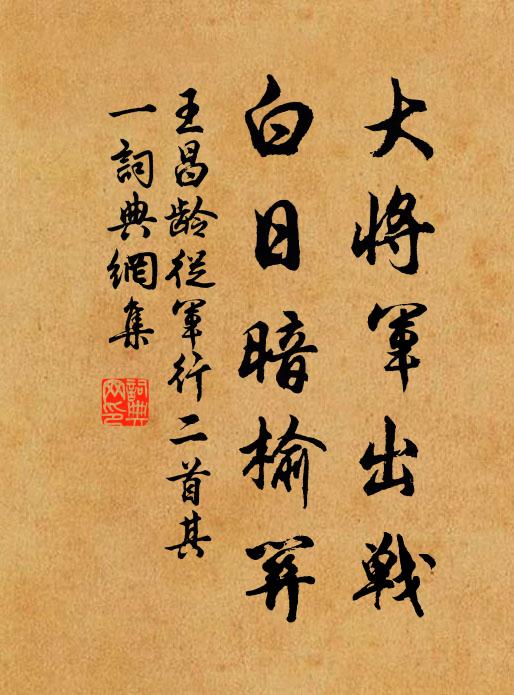 大將軍出戰
白日暗榆關
王昌龄從軍行二首其
一詞典網集
詞典網印